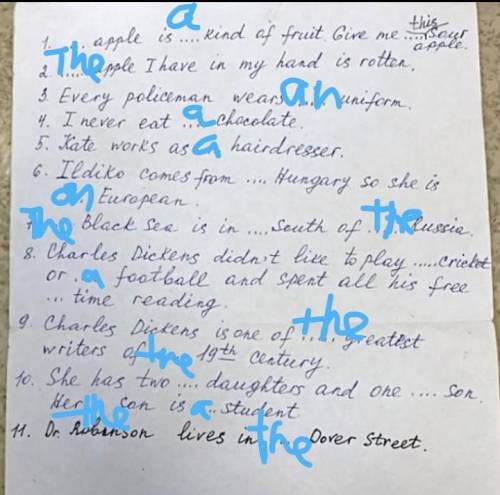 a
1. .... apple is .... kind of fruit. Give me this .... sour
apple.
2. The apple I have in my hand is rotten.
3. Every policeman wears an uniform.
4. I never eat a chocolate.
5. Kate works as a hairdresser.
6. Ildiko comes from .... Hungary so she is
an European.
7. The Black Sea is in .... South of the Russia.
8. Charles Dickens didn't like to play ..... cricket
or a football and spent all his free
... time reading.
9. Charles Dickens is one of the greatest
writers of the 19th century.
10. She has two .... daughters and one .... son.
Her the son is a student.
11. Dr. Robinson lives in the Dover Street.